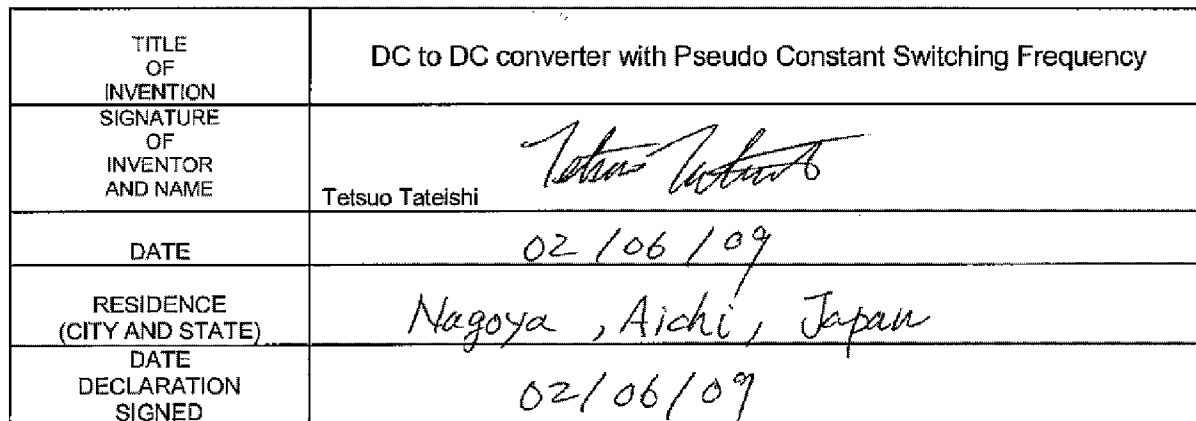 TITLE
OF
INVENTION
DC to DC converter with Pseudo Constant Switching Frequency
SIGNATURE
OF
INVENTOR
AND NAME
Tetsuo Tateishi
Tetsuo Tateishi
DATE
02/06/09
RESIDENCE
(CITY AND STATE)
Nagoya, Aichi, Japan
DATE
DECLARATION
SIGNED
02/06/09